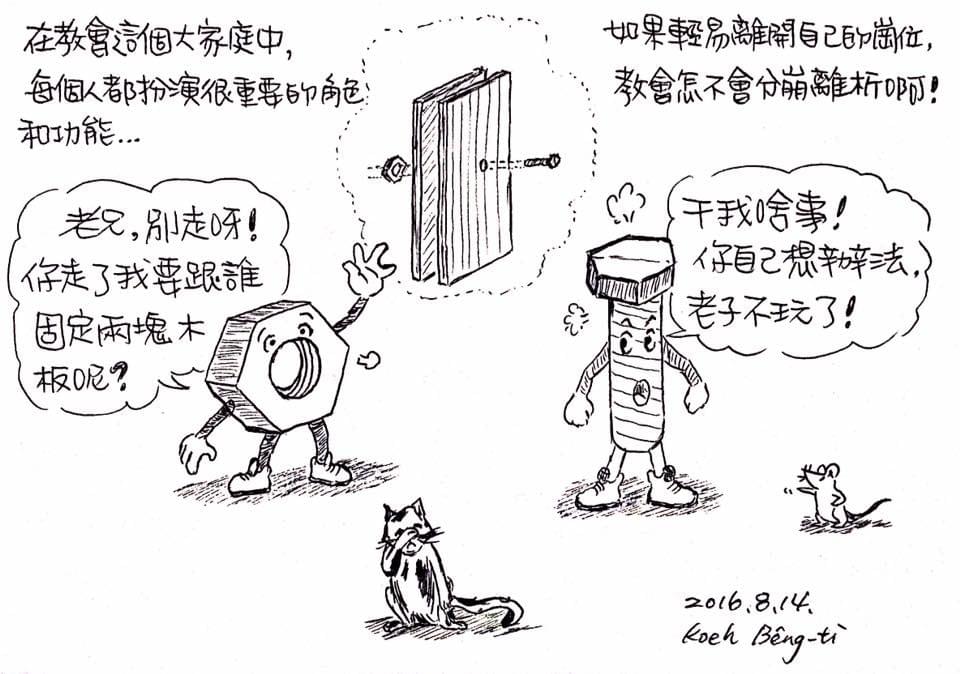 在教會這個大家庭中,
每個人都扮演很重要的角色
和功能...
如果輕易離開自己的崗位,
教會怎不會分崩離析啊!
老兄,別走呀!
你走了我要跟誰
固定兩塊木
板呢?
干我啥事!
你自己想辦法,
老子不玩了!
2016.8.14.
Koeh Bêng-tì